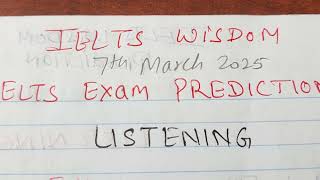 IELTS WiSDOM
7th March 2025
ELTS Exam PREDICTION
LISTENING